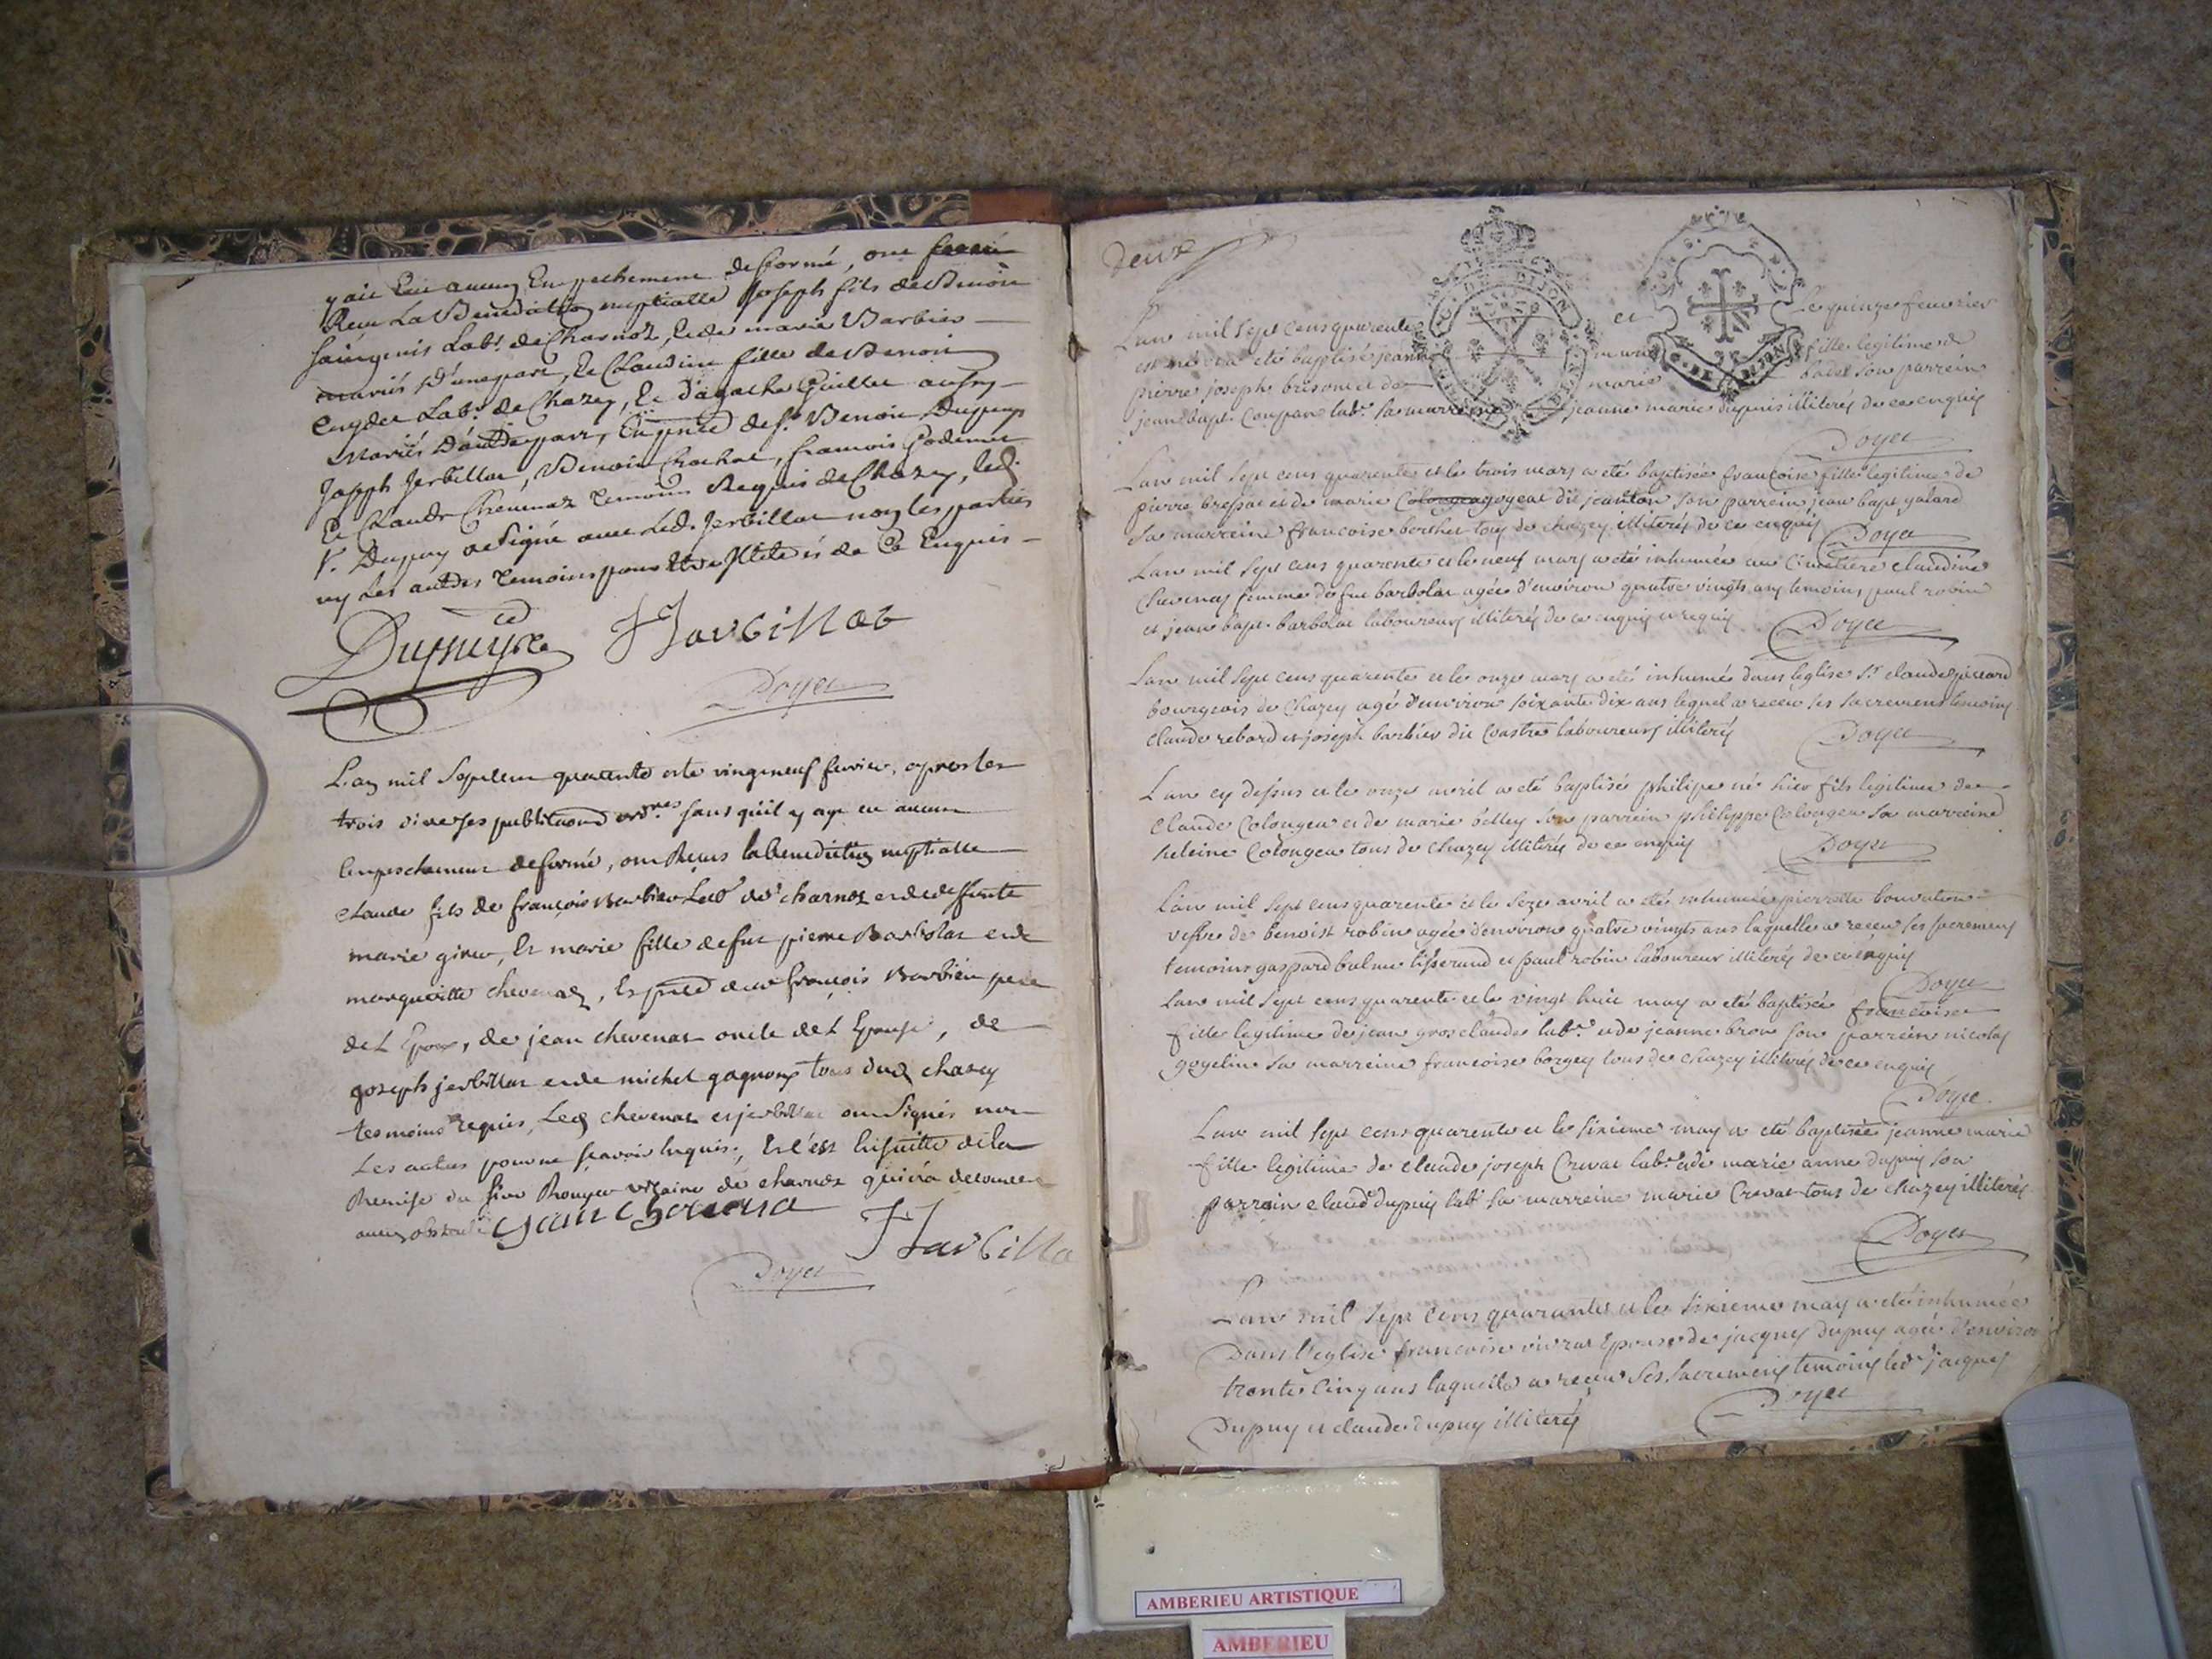 y ait eu aucun Empechement desformé, ont
Reçu La Benediction nuptialle Joseph fils de Benoit
Labr. de Charnoz, et de marie Barbier
mariés D'une part, Et Claudine fille de Benoit
Labr. de Chazey, Et d'agathe
mariés D'autre part, En pnce de Sr. Benoit Dupuy
Joseph Jerbillat, Benoit, francois
Et Claude Chevenaz temoins Requis de Chazey, led.
Sr. Dupuy a Signé avec Led. Jerbillat non les parties
ny Les autres temoins pour etre illiterés de Ce Enquis
Dupuy Jarbillat
Doyer
L'an mil Sept cent quarente et le vingt neuf fevrier, apres les
trois diverses publications ordres sans qu'il y aye eu aucun
Empeschement deformé, ont Reçus la benediction nuptialle
claude fils de françois Barbier Labr de charnoz et de deffunte
marie, Et marie fille de fut pierre Barbolat et de
margueritte chevenaz, Es pnce de françois Barbier pere
de L'Epoux, de jean chevenaz oncle de L'Epouse, de
joseph jerbillat et de michel gagneux tous dud chazey
tesmoins requis, Led chevenaz et jerbillat ont Signés non
Les autres pour ne sçavoir Enquis, Et c'est Ensuitte de la
Remise du Sieur Rouyer vicaire de charnoz
aucun obstacle jean chevena
Jarbilla
Doyer
Deux
DE DIJON
L'an mil sept cens quarente et le quinze fevrier
est née et a eté baptisée jeanne marie fille legitime de
pierre joseph brisont et de marie son parrein
jean bapt. Coupan labr. sa marreine jeanne marie dupuis illiterés de ce enquis
Doyer
L'an mil sept cens quarente et le trois mars a eté baptisée françoise fille legitime de
pierre bressat et de marie goyeat dit jeanton son parrein jean bapt galard
sa marreine françoise berthet tous de chazey illiterés de ce enquis
Doyer
L'an mil sept cens quarente et le neuf mars a eté inhumée au Cimetiere claudine
Chevenas femme de fut barbolat agée d'environ quatre vingts ans temoins paul robin
et jean bapt. barbolat laboureurs illiterés de ce enquis et requis
Doyer
L'an mil sept cens quarente et le onze mars a eté inhumé dans l'eglise Sr. claude
bourgeois de Chazey agé d'environ soixante dix ans lequel a receu ses sacremens temoins
Claude rebard et joseph barbier dit Coastre laboureurs illiterés
Doyer
L'an cy dessus et le onze avril a eté baptisé philipe né hier fils legitime de
Claude Colongeu et de marie belley son parrein philippe Colongeu sa marreine
heleine Colongea tous de chazey illiterés de ce enquis
Doyer
L'an mil sept cens quarente et le seze avril a eté inhumée pierrette
vefve de benoist robin agée d'environ quatre vingts ans laquelle a receu ses sacremens
temoins gaspard balme tisserand et paul robin laboureur illiterés de ce enquis
Doyer
L'an mil sept cens quarente et le vingt huit may a eté baptisée françoise
fille legitime de jean grosclaude labr. et de jeanne brou son parrein nicolas
goyelin sa marreine françoise borgey tous de chazey illiterés de ce enquis
Doyer
L'an mil sept cens quarente et le sixieme may a eté baptisée jeanne marie
fille legitime de claude joseph Crevat labr. et de marie anne dupuy son
parrein claud dupuy labr. sa marreine marie Crevat tous de chazey illiterés
Doyer
L'an mil sept cens quarante et le sixieme may a eté inhumée
Dans l'eglise françoise Epouse de jacques dupuy agée d'environ
trente Cinq ans laquelle a receu Ses sacremens temoins led. jacques
Dupuy et claude dupuy illiterés
Doyer
AMBERIEU ARTISTIQUE
AMBERIEU